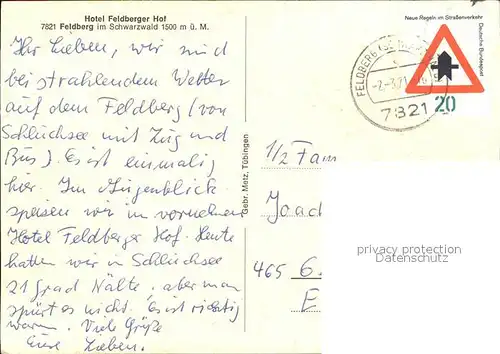 Hotel Feldberger Hof
7821 Feldberg im Schwarzwald 1500 m ü. M.
Ihr Lieben, wir sind
bei strahlendem Wetter
auf dem Feldberg (von
Schluchsee mit Zug und
Bus). Es ist einmalig
hier. Im Augenblick
speisen wir im vornehmen
Hotel Feldberger Hof. Heute
hatten wir in Schluchsee
21 Grad Kälte, aber man
spürt es nicht. Es ist richtig
warm. Viele Grüße
Eure Lieben.
Gebr. Metz, Tübingen
Neue Regeln im Straßenverkehr
Deutsche Bundespost
20
FELDBERG
7821
1/2 Fam
Joach
465 G
E
privacy protection
Datenschutz